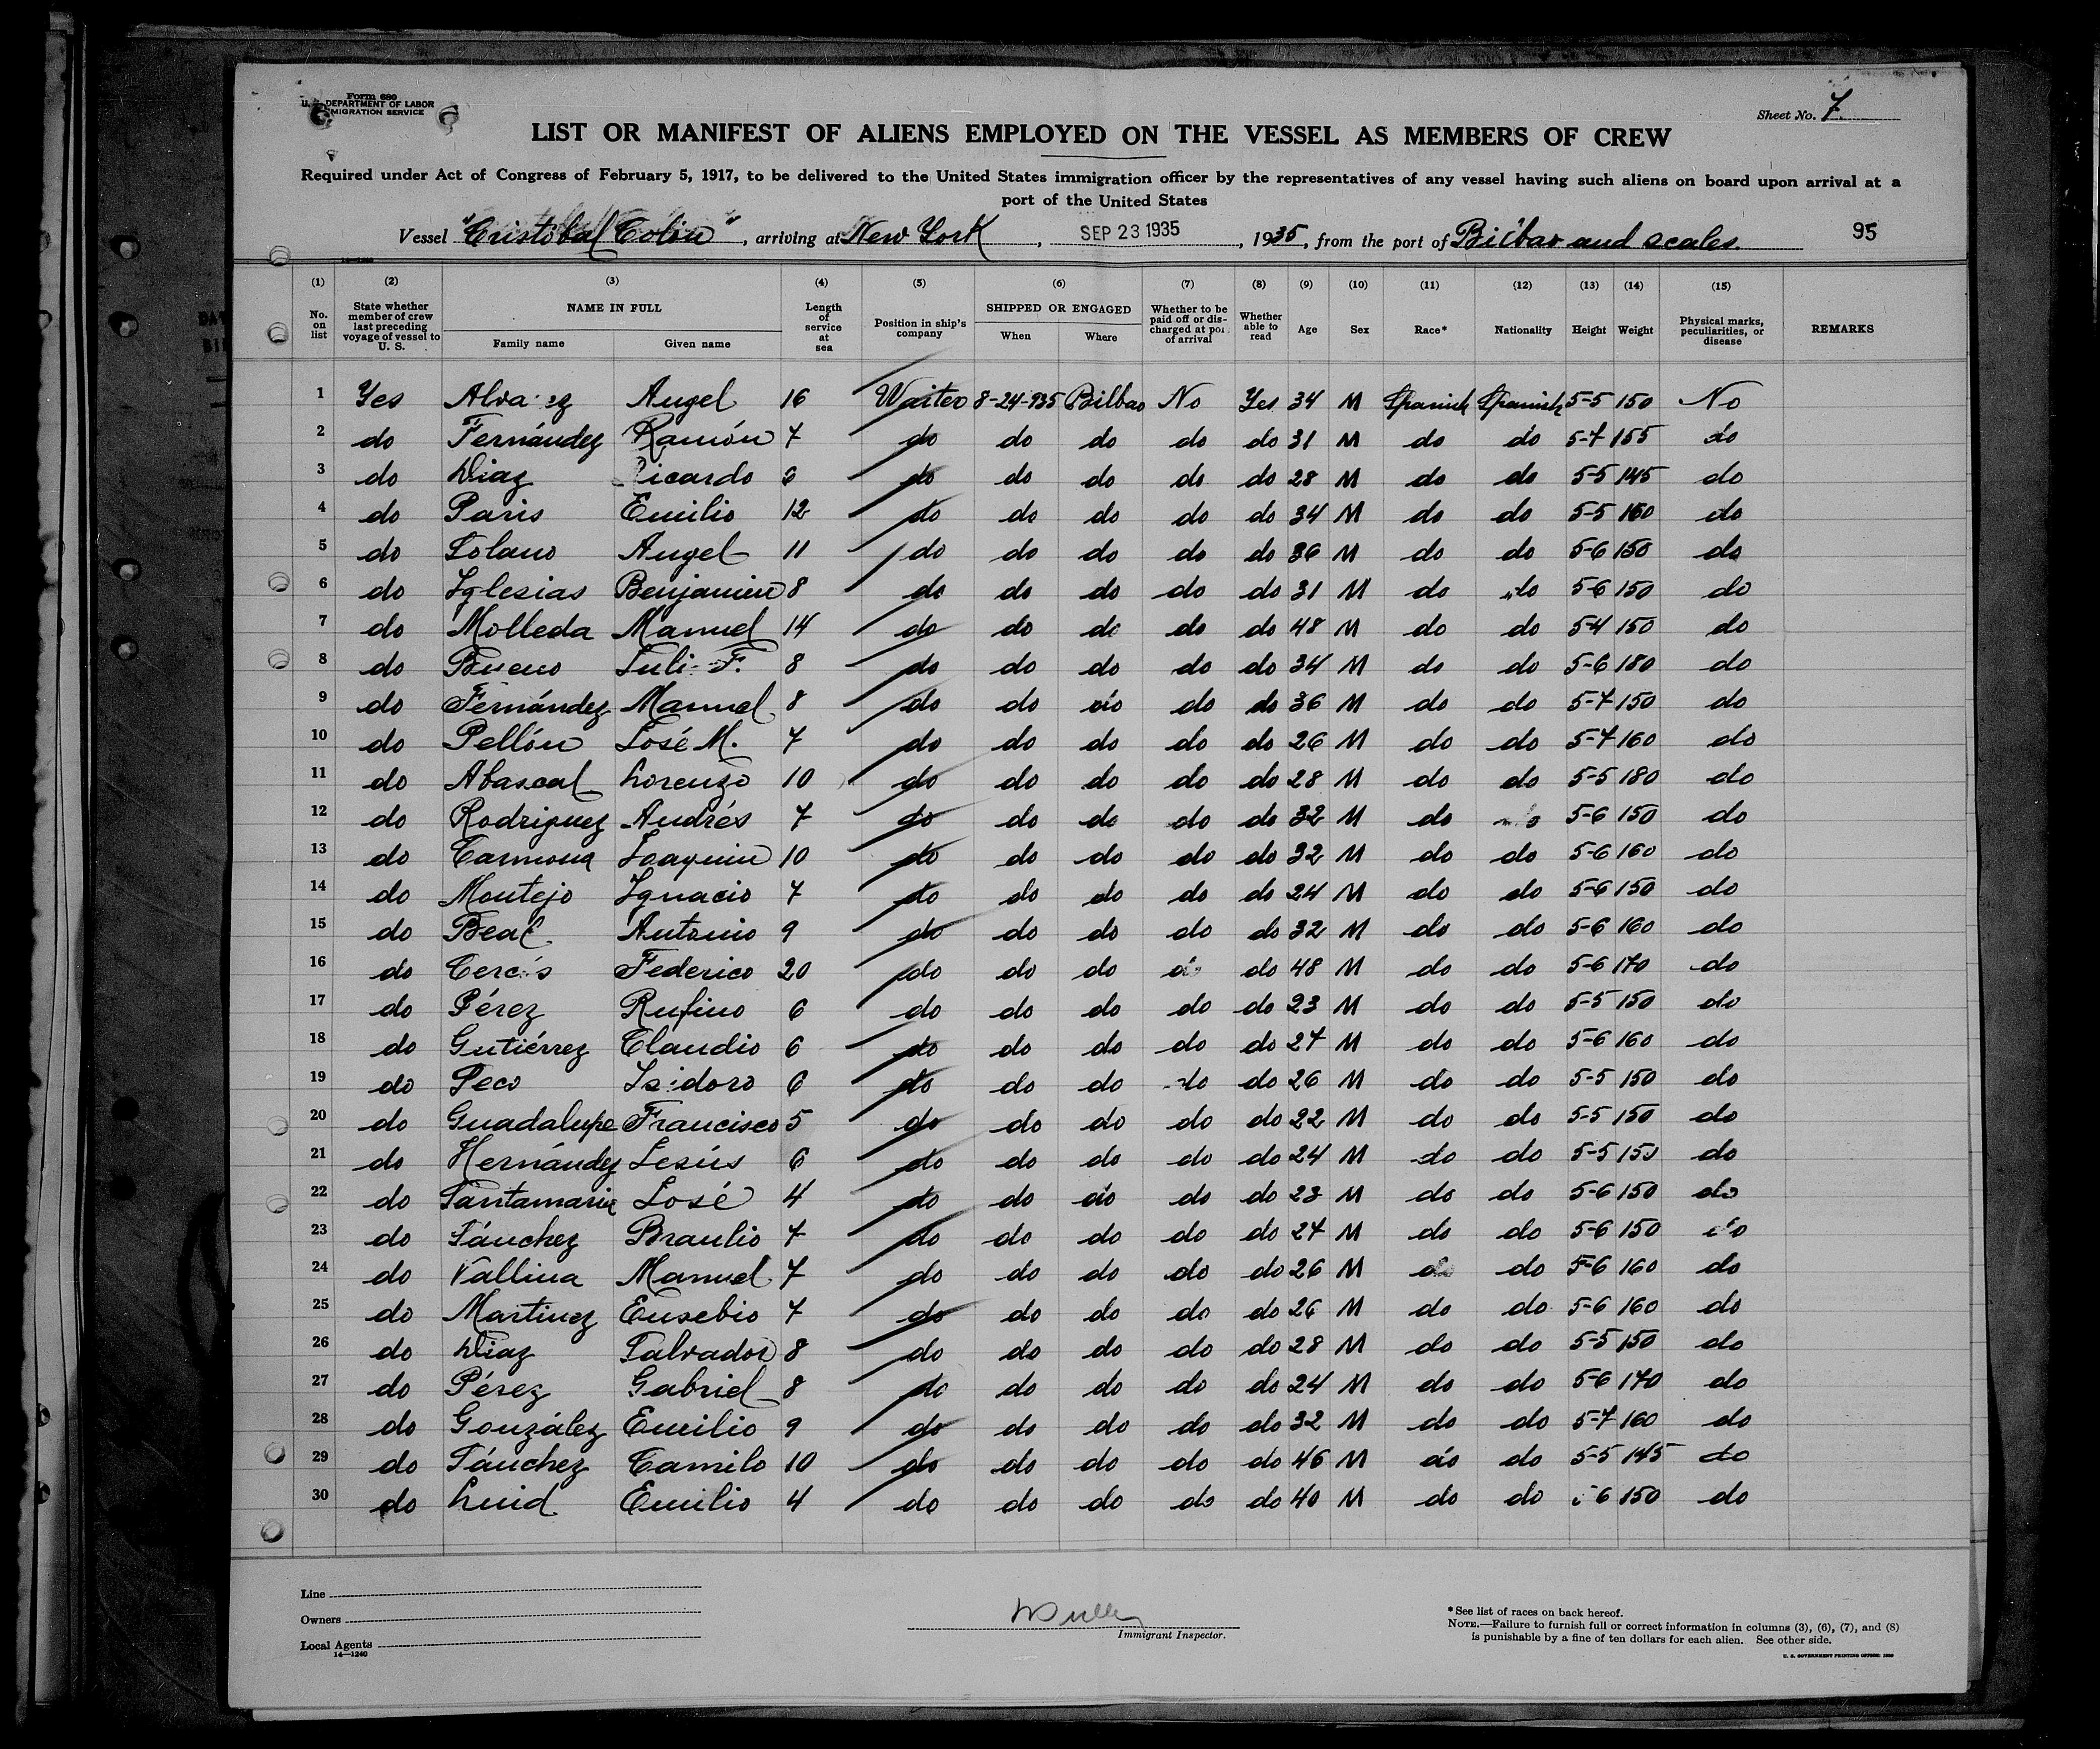 Form 680
U. S. DEPARTMENT OF LABOR
IMMIGRATION SERVICE
Sheet No. 7
LIST OR MANIFEST OF ALIENS EMPLOYED ON THE VESSEL AS MEMBERS OF CREW
Required under Act of Congress of February 5, 1917, to be delivered to the United States immigration officer by the representatives of any vessel having such aliens on board upon arrival at a
port of the United States
Vessel "Cristóbal Colón", arriving at New York, SEP 23 1935, 1935, from the port of Bilbao and scales. 95
(1) (2) (3) (4) (5) (6) (7) (8) (9) (10) (11) (12) (13) (14) (15)
No. on list State whether member of crew last preceding voyage of vessel to U. S. NAME IN FULL Family name Given name Length of service at sea Position in ship's company SHIPPED OR ENGAGED When Where Whether to be paid off or discharged at port of arrival Whether able to read Age Sex Race* Nationality Height Weight Physical marks, peculiarities, or disease REMARKS
1 Yes Alvarez Angel 16 Waiter 8-24-935 Bilbao No Yes 34 M Spanish Spanish 5-5 150 No
2 do Fernández Ramón 7 do do do do do 31 M do do 5-7 155 do
3 do Diaz Ricardo 6 do do do do do 28 M do do 5-5 145 do
4 do Paris Emilio 12 do do do do do 34 M do do 5-5 160 do
5 do Solano Angel 11 do do do do do 36 M do do 5-6 150 do
6 do Iglesias Benjamin 8 do do do do do 31 M do do 5-6 150 do
7 do Molleda Manuel 14 do do do do do 48 M do do 5-4 150 do
8 do Bueno Juli F. 8 do do do do do 34 M do do 5-6 180 do
9 do Fernández Manuel 8 do do do do do 36 M do do 5-7 150 do
10 do Pellón José M. 7 do do do do do 26 M do do 5-7 160 do
11 do Abascal Lorenzo 10 do do do do do 28 M do do 5-5 180 do
12 do Rodriguez Andrés 7 do do do do do 32 M do do 5-6 150 do
13 do Carmona Joaquin 10 do do do do do 32 M do do 5-6 160 do
14 do Montejo Ignacio 7 do do do do do 24 M do do 5-6 150 do
15 do Beal Antonio 9 do do do do do 32 M do do 5-6 160 do
16 do Federico 20 do do do do do 48 M do do 5-6 170 do
17 do Pérez Rufino 6 do do do do do 23 M do do 5-5 150 do
18 do Gutiérrez Claudio 6 do do do do do 27 M do do 5-6 160 do
19 do Peco Isidoro 6 do do do do do 26 M do do 5-5 150 do
20 do Guadalupe Francisco 5 do do do do do 22 M do do 5-5 150 do
21 do Hernández Jesús 6 do do do do do 24 M do do 5-5 150 do
22 do Santamaria José 4 do do do do do 23 M do do 5-6 150 do
23 do Sánchez Braulio 7 do do do do do 27 M do do 5-6 150 do
24 do Vallina Manuel 7 do do do do do 26 M do do 5-6 160 do
25 do Martinez Eusebio 7 do do do do do 26 M do do 5-6 160 do
26 do Diaz Salvador 8 do do do do do 28 M do do 5-5 150 do
27 do Pérez Gabriel 8 do do do do do 24 M do do 5-6 170 do
28 do González Emilio 9 do do do do do 32 M do do 5-7 160 do
29 do Sánchez Camilo 10 do do do do do 46 M do do 5-5 145 do
30 do Luid Emilio 4 do do do do do 40 M do do 5-6 150 do
Line
Owners
Local Agents
14—1240
Immigrant Inspector.
*See list of races on back hereof.
NOTE.—Failure to furnish full or correct information in columns (3), (6), (7), and (8)
is punishable by a fine of ten dollars for each alien. See other side.
U. S. GOVERNMENT PRINTING OFFICE: